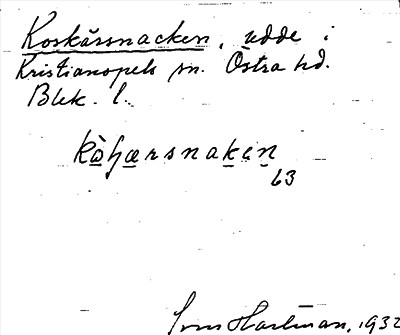 Korkärsnacken, udde i
Kristianopels sn. Östra hd.
Blek. l.
kòɧærsnaken
63
Sven Hartman, 1932